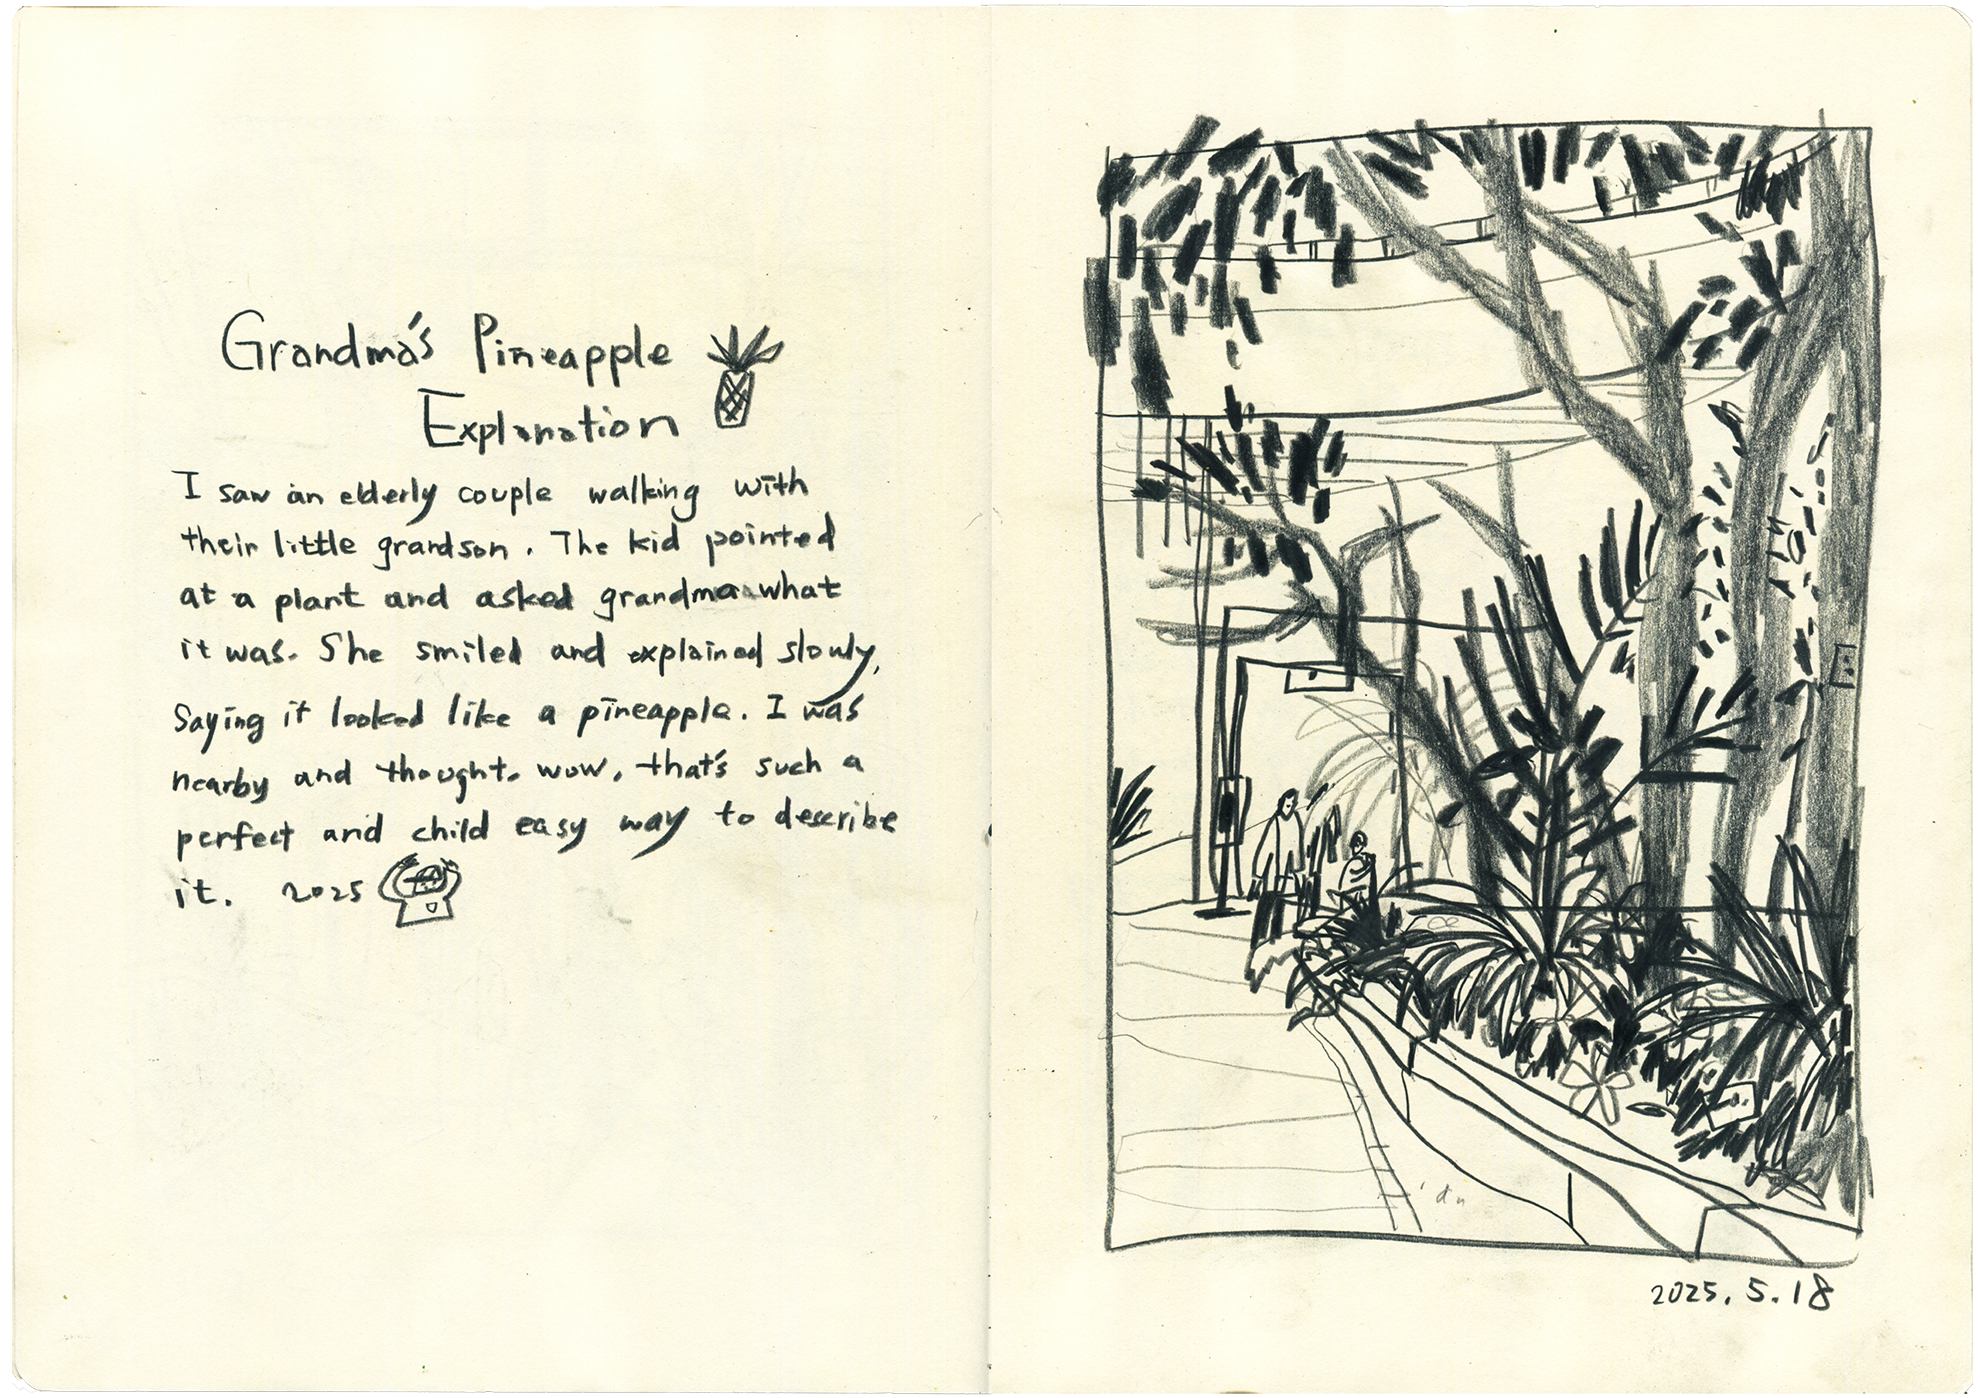 Grandma's Pineapple
Explanation
I saw an elderly couple walking with
their little grandson. The kid pointed
at a plant and asked grandma what
it was. She smiled and explained slowly,
Saying it looked like a pineapple. I was
nearby and thought. wow, that's such a
perfect and child easy way to describe
it. 2025
2025. 5. 18